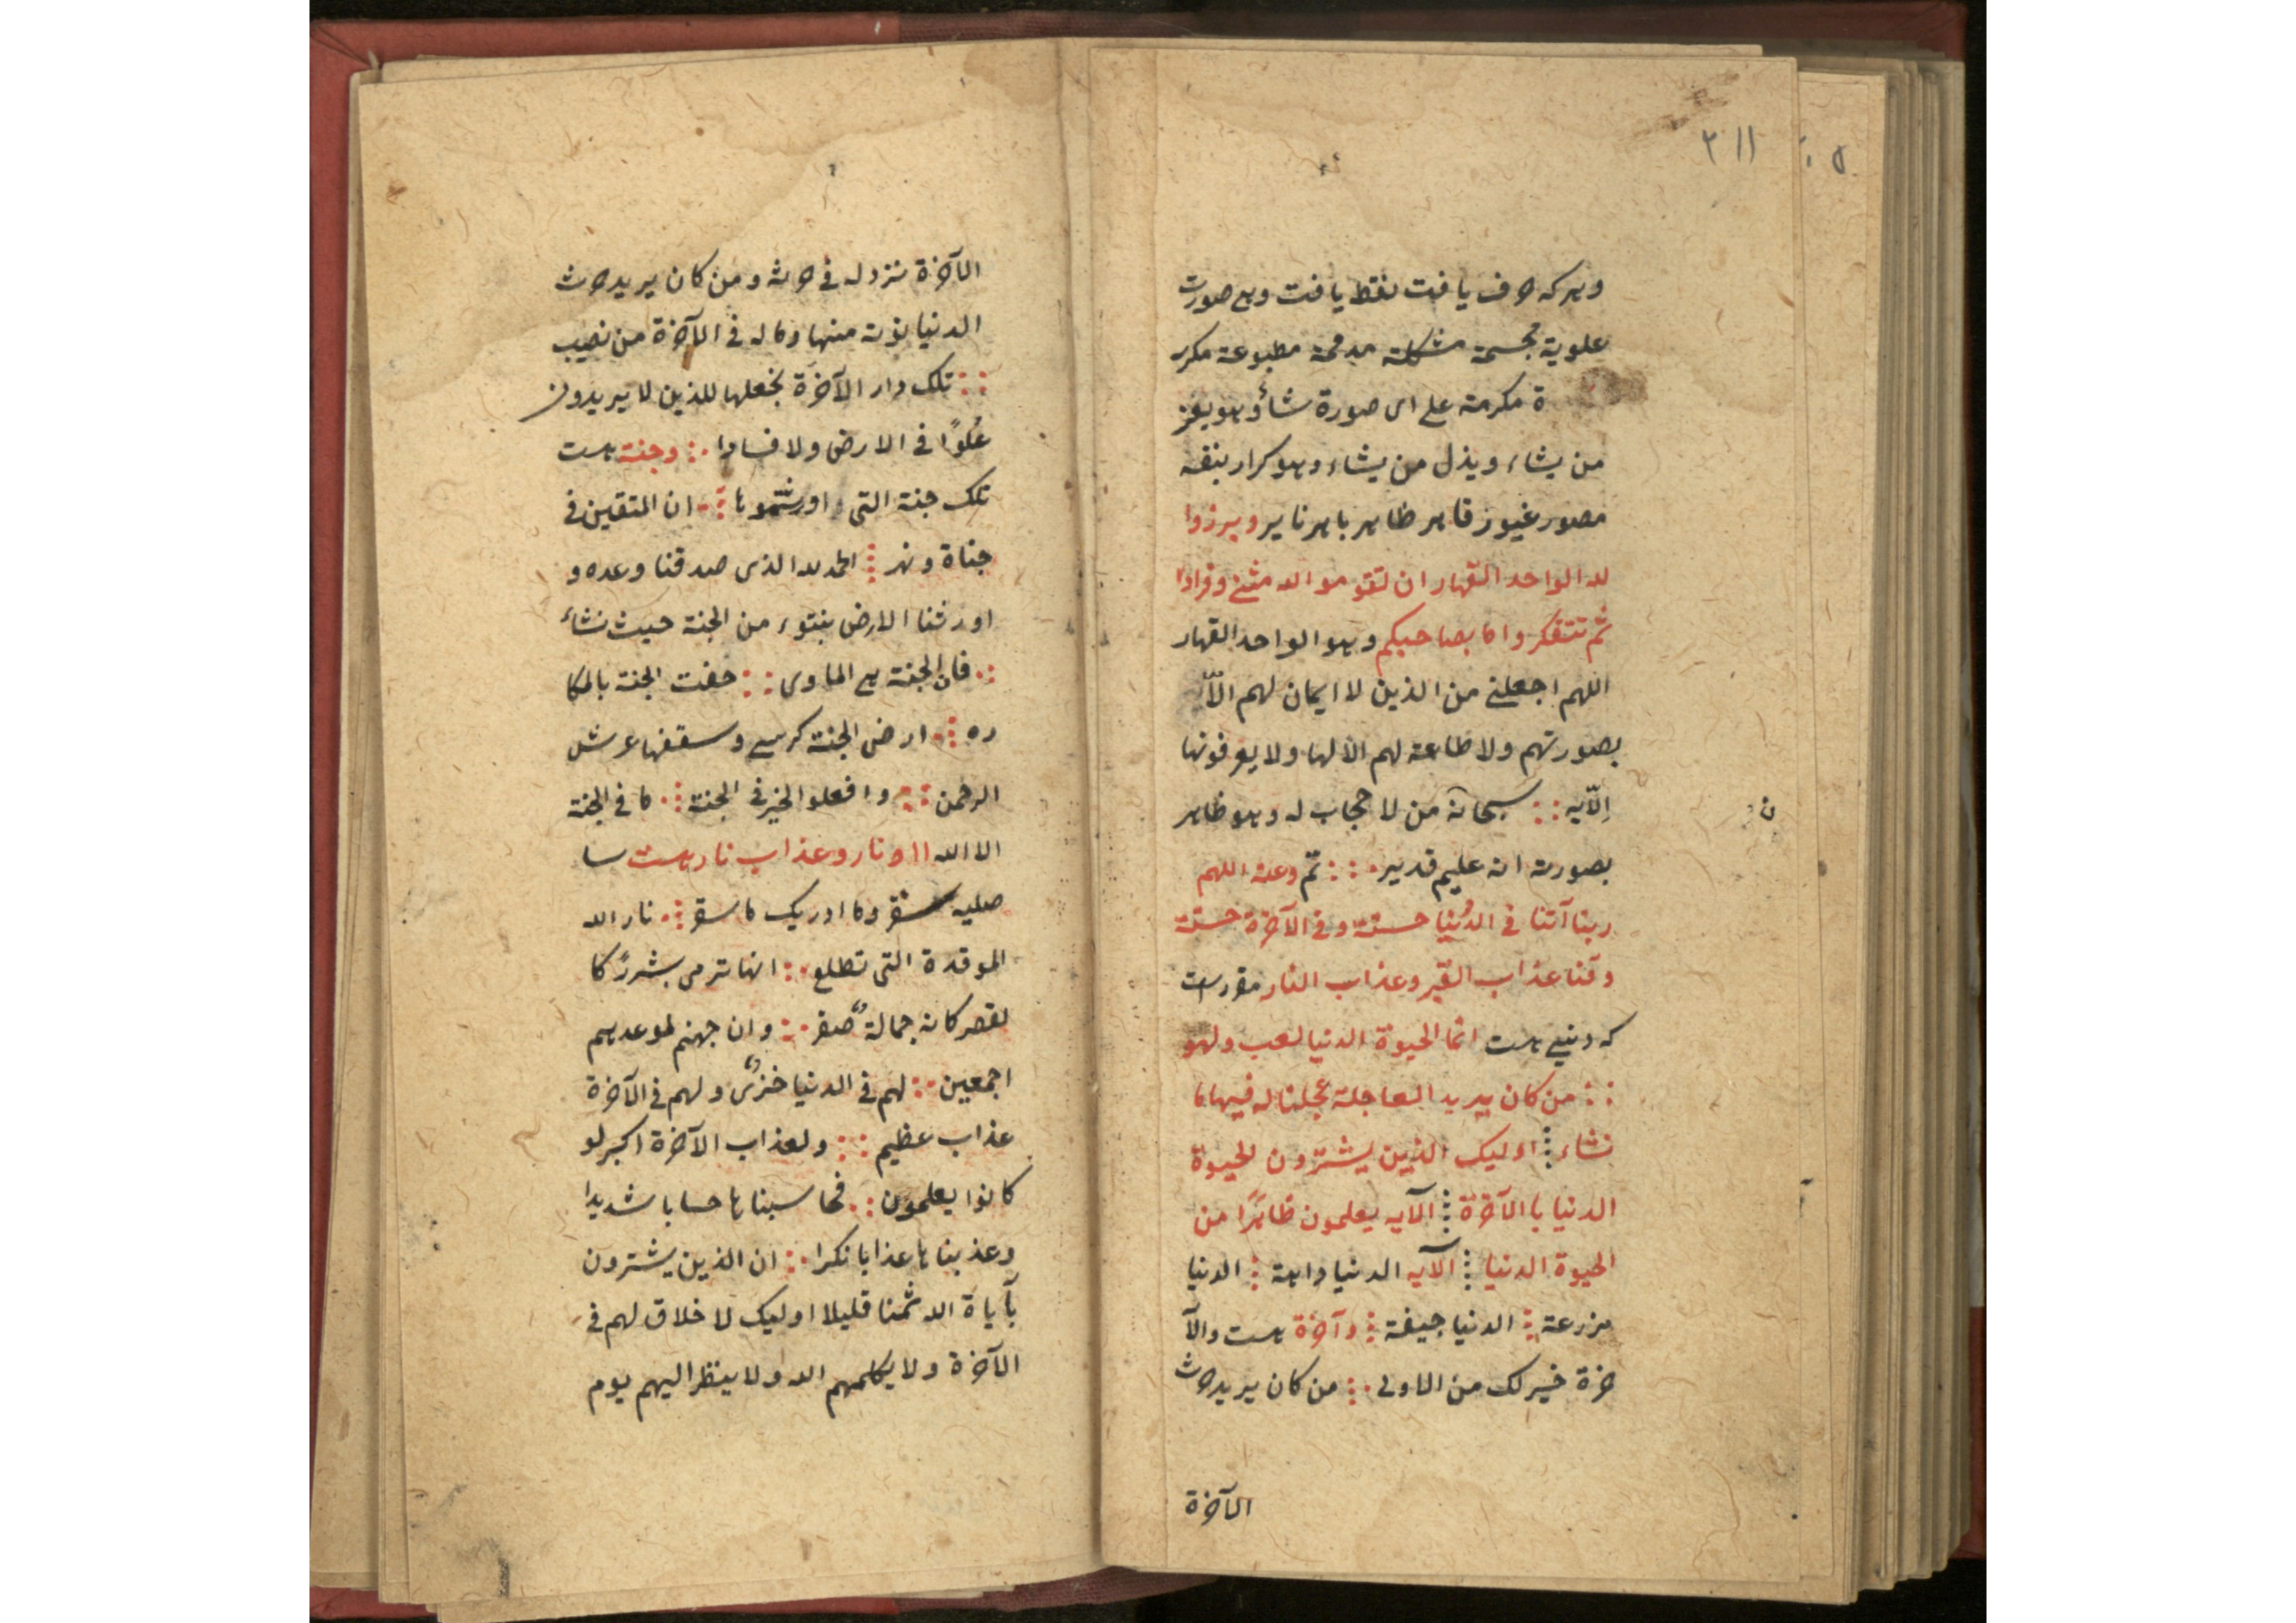 ٢١١
وہر که حرف یافت نقط یافت وبے صورت
علویة مجسمة مشکلته مدمحة مطبوعة مکرر
ة مکرمته علے ای صورة شأ وہو یعز
من یشاء ویذل من یشاء وہو کرار بنفسه
مصور غیور قاہر ظاہر باہر نایر وبرزوا
لله الواحد القهار ان تقوموا لله مثنے وفرادا
ثم تتفکروا ما بصاحبکم وہو الواحد القهار
اللهم اجعلنے من الذین لا ایمان لهم الّا
بصورتهم ولا طاعة لهم الا لها ولا یعرفونها
اِلّا به ∴ سبحانه من لا حجاب له وہو ظاہر
بصورته انه علیم قدیر ∴ تم وعده اللهم
ربنا آتنا فی الدُنیا حسنة وفی الآخرة حسنة
وقنا عذاب القبر وعذاب النار مقررست
که دنیے ہست انما الحیوة الدنیا لعب ولهو
∴ من کان یرید العاجلة عجلنا له فیها ما
نشاء ⁝ اولیک الذین یشترون الحیوة
الدنیا با الآخرة ⁝ الآیه یعلمون ظاہرًا من
الحیوة الدنیا ⁝ الآیه الدنیا داہة ⁝ الدنیا
مزرعة ⁝ الدنیا جیفة ⁝ وآخرة ہست والآ
خرة خیر لک من الاولی ∴ من کان یرید حرث
الآخرة
الآخرة نزد له فی حرثه ومن کان یرید حرث
الدنیا نوته منها وماله فی الآخرة من نصیب
∴ تلک دار الآخرة نجعلها للذین لا یریدون
عُلوًا فی الارض ولا فسادا ∴ وجنة ہست
تلک جنة التی اورثتموہا ∴ ان المتقین فی
جناة ونهر ⁝ الحمد لله الذی صدقنا وعده و
اورثنا الارض بنتوء من الجنة حیث نشاء
∴ فان الجنة ہے الماوی ∴ حفت الجنة بالمکا
ره ∴ ارض الجنة کرسے وسقفها عرش
الرحمن ∴ وافعلوا الخیر فی الجنة ∴ ما فی الجنة
الا الله ١١ ونار وعذاب نار ہست سا
صلیه سقر وما ادریک ما سقر ∴ نار الله
الموقدة التی تطلع ∴ انها ترمی بشررٍ کا
لقصر کانه جمالةٌ صفر ∴ وان جهنم لموعدہم
اجمعین ∴ لهم فی الدنیا خزیٌ ولهم فی الآخرة
عذاب عظیم ∴ ولعذاب الآخرة اکبر لو
کانوا یعلمون ∴ فحاسبناہا حسابا شدیدا
وعذبناہا عذابا نکرا ∴ ان الذین یشترون
بآیاة الله ثمنا قلیلا اولیک لا خلاق لهم فی
الآخرة ولا یکلمهم الله ولا ینظر الیهم یوم